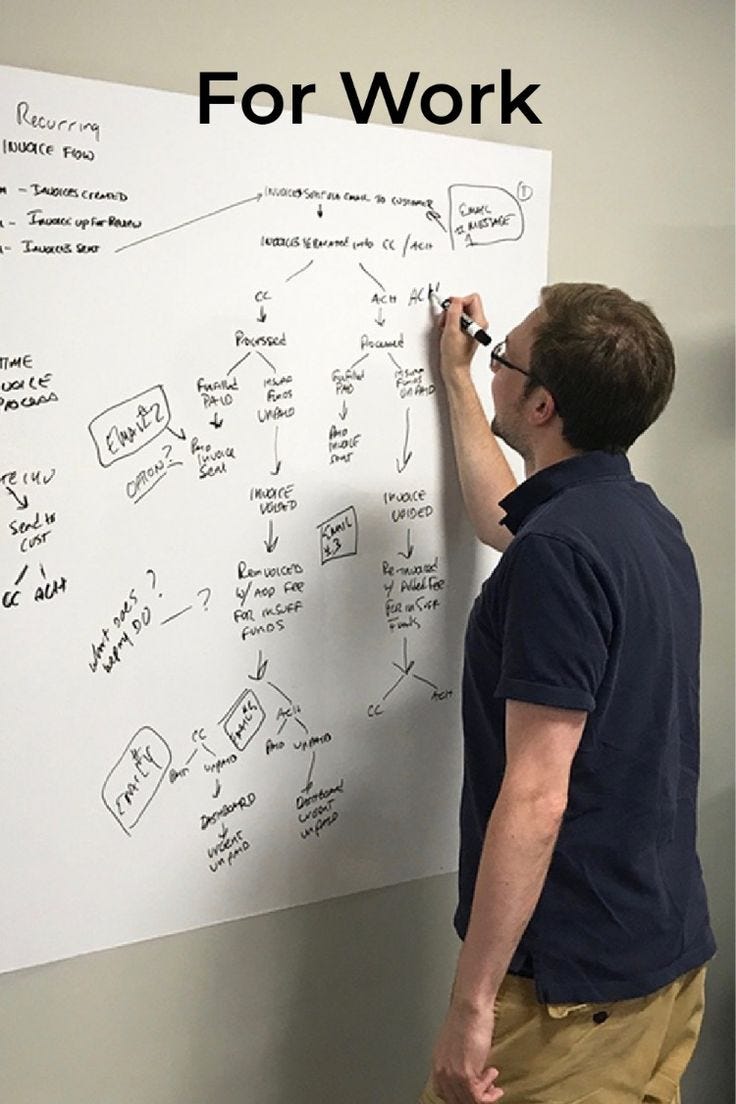 For Work
Recurring
INVOICE FLOW
- INVOICES CREATED
- INVOICE UP FOR REVIEW
- INVOICES SENT
INVOICES SENT VIA EMAIL TO CUSTOMER
1
EMAIL
MESSAGE
1
INVOICES SEPARATED INTO CC / ACH
CC
ACH
ACH
Processed
Processed
Fulfilled
PAID
INSUFF
FUNDS
UNPAID
Fulfilled
PAID
INSUFF
FUNDS
UNPAID
EMAIL #2
OPTION?
PAID
INVOICE
SENT
PAID
INVOICE
SENT
TIME
INVOICE
PROCESS
INV
Send to
CUST
CC ACH
INVOICE
VOIDED
INVOICE
VOIDED
EMAIL
#3
Reinvoiced
W/ ADD FEE
FOR INSUFF
FUNDS
Re-invoiced
w/ Added Fee
For InSuff
Funds
What Does ?
DO — ?
CC
ACH
CC
ACH
PAID
UNPAID
PAID
UNPAID
EMAIL #4
EMAIL #5
DASHBOARD
URGENT
UNPAID
DASHBOARD
URGENT
UNPAID